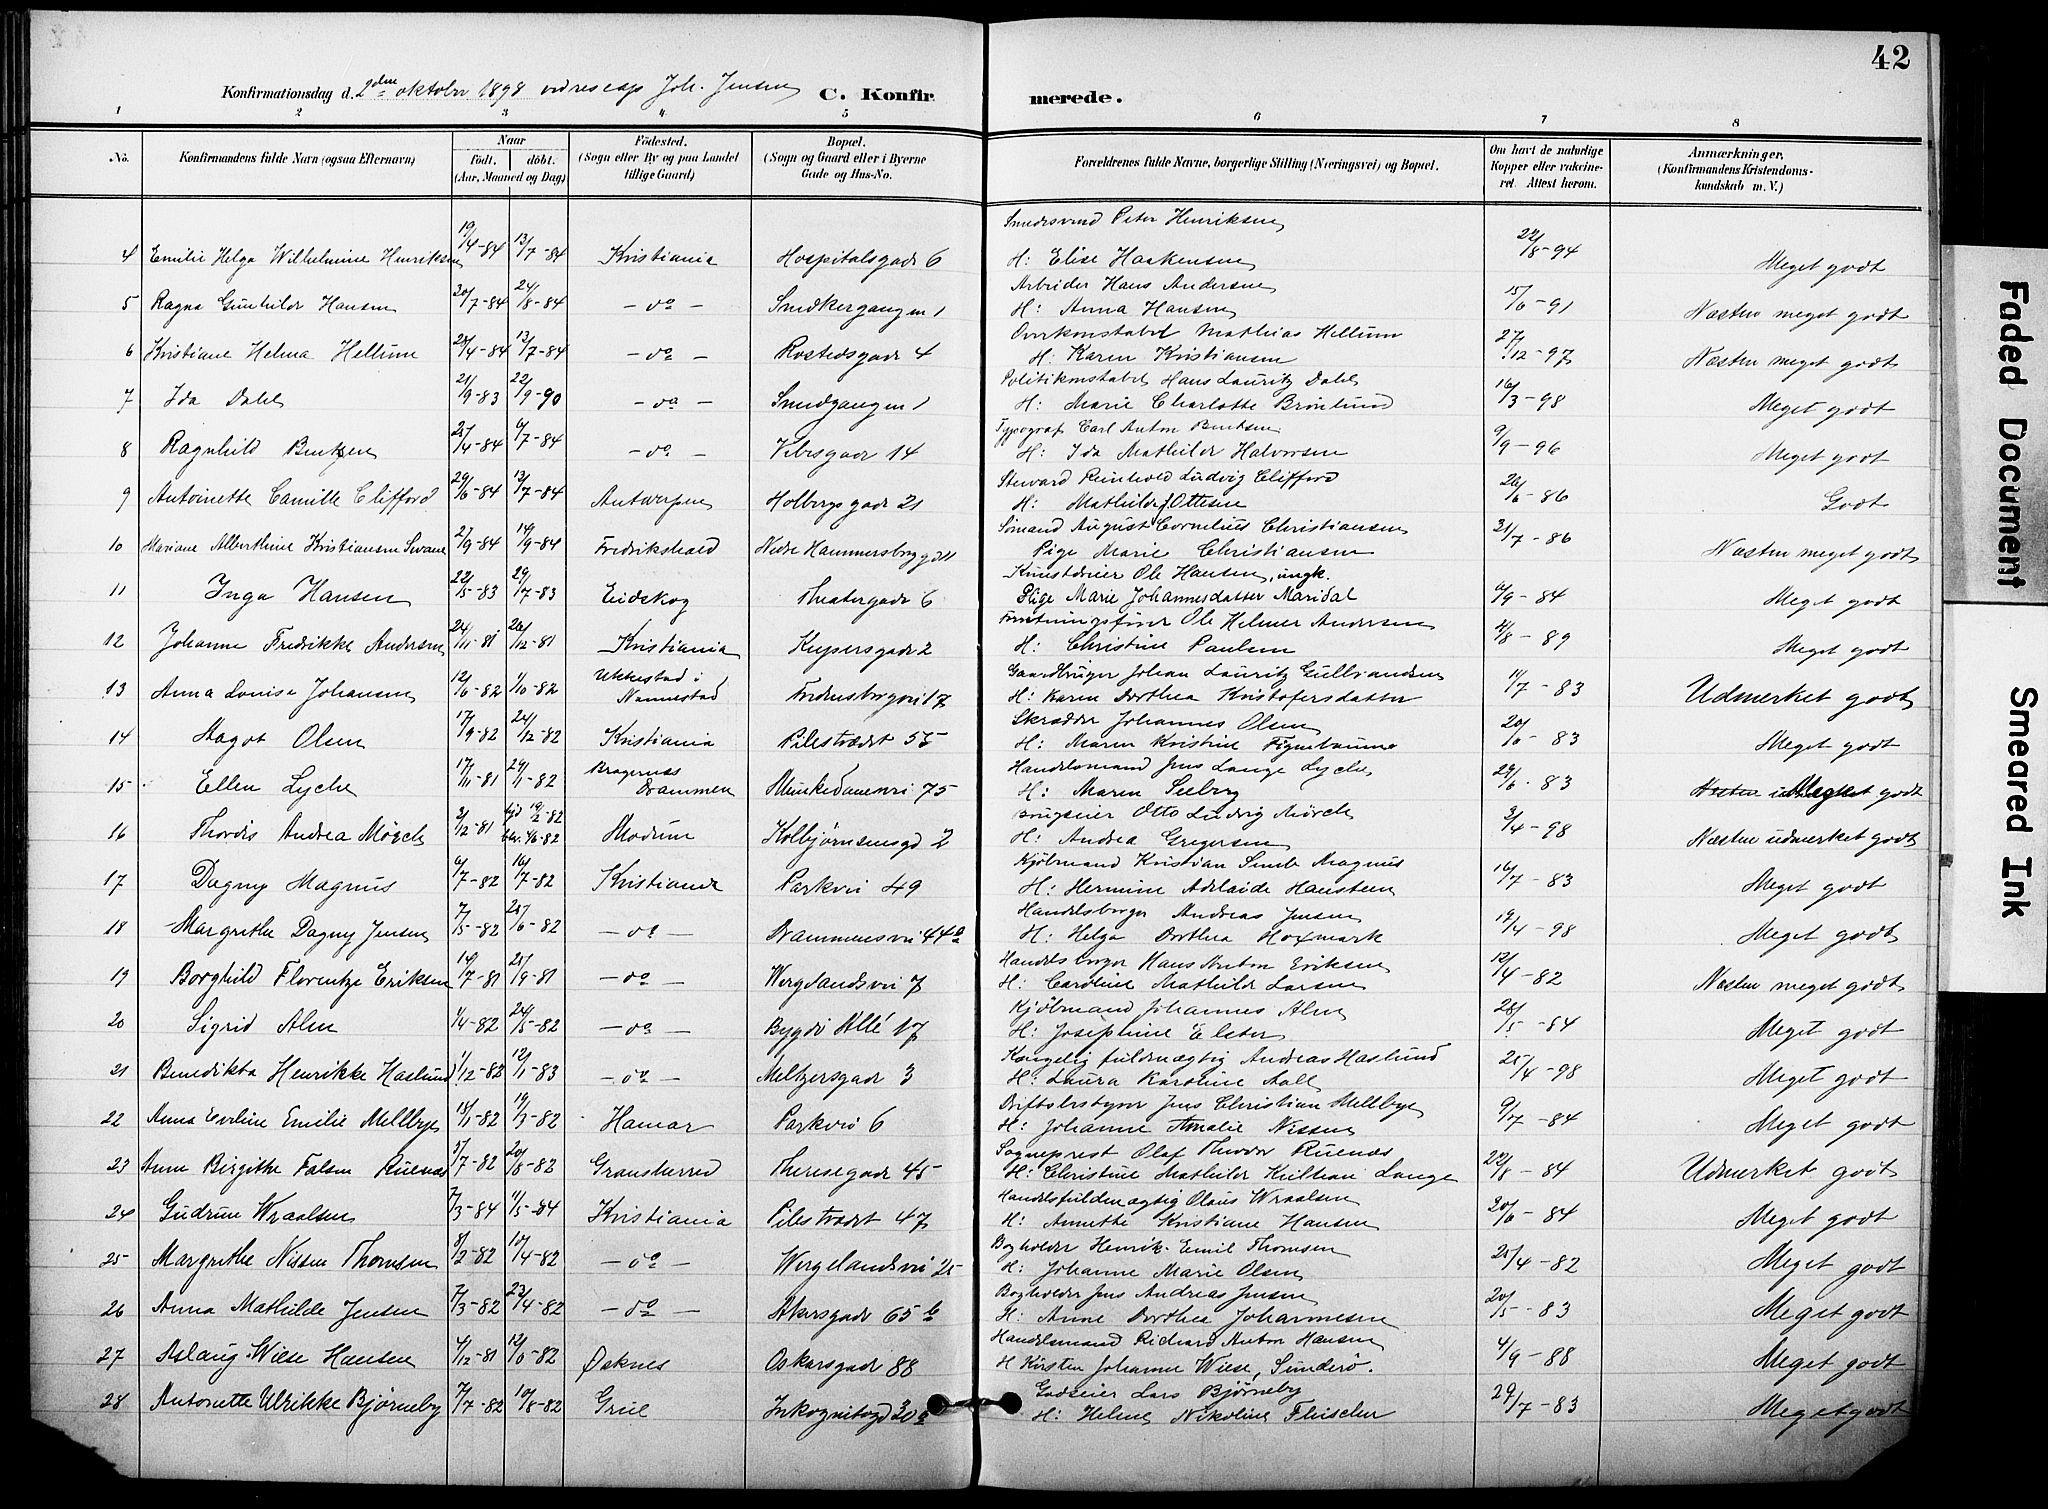 42
Konfirmationsdag d. 2den oktober 1898 ved rescap Joh. Jensen C. Konfirmerede.
1 2 3 4 5 6 7 8
No. Konfirmandens fulde Navn (ogsaa Efternavn) Naar født. døbt. (Aar, Maaned og Dag) Fødested. (Sogn eller By og paa Landet tillige Gaard) Bopæl. (Sogn og Gaard eller i Byerne Gade og Hus-No. Forældrenes fulde Navne, borgerlige Stilling (Næringsvei) og Bopæl. Om havt de naturlige Kopper eller vakcineret. Attest herom. Anmærkninger, (Konfirmandens Kristendomskundskab m. V.)
Smedsvend Peter Henriksen
4 Emilie Helga Wilhelmine Henriksen 19/4-84 13/7-84 Kristiania Hospitalsgade 6 H: Elise Haakensen 22/8-94 Meget godt
Arbeider Hans Andersen
5 Ragna Gunhilde Hansen 20/7-84 24/8-84 -do- Snedkergangen 1 H: Anna Hansen 15/6-91 Næsten meget godt
Overkonstabel Mathias Hellum
6 Kristiane Helma Hellum 28/4-84 13/7-84 -do- Rostedsgade 4 H: Karen Kristiansen 27/12-97 Næsten meget godt
Politikonstabel Hans Lauritz Dahl
7 Ida Dahl 21/9-83 22/9-90 -do- Smedgangen 1 H: Marie Charlotte Brønlund 16/3-98 Meget godt
Typograf Carl Anton Bentsen
8 Ragnhild Bentzen 25/4-84 6/7-84 -do- Vibesgade 14 H: Ida Mathilde Halvorsen 9/9-96 Meget godt
Steward Reinhold Ludvig Clifford
9 Antoinette Camille Clifford 29/6-84 13/7-84 Antwerpen Holbergsgade 21 H: Mathilde Ottesen 26/6-86 Godt
Sømand August Cornelius Christiansen
10 Mariane Alberthine Kristiansen Svane 27/9-84 14/9-84 Fredrikshald Nedre Hammersborggd 11 Pige Marie Christiansen 21/7-86 Næsten meget godt
Ole Hansen, ungk.
11 Inga Hansen 22/5-83 29/7-83 Eidskog Theatergade 6 Pige Marie Johannesdatter Maridal 6/9-84 Meget godt
Ole Helmer Andersen
12 Johanne Fredrikke Andersen 24/11-81 26/12-81 Kristiania Keysersgade 2 H: Christine Paulsen 4/8-89 Meget godt
Gaardbruger Johan Lauritz Gulbrandsen
13 Anna Louise Johansen 12/6-82 1/10-82 Ukkestad i Nannestad Fredensborgvei 17 H: Karen Dorthea Kristofersdatter 11/7-83 Udmerket godt
Skrædder Johannes Olsen
14 Hagot Olsen 17/9-82 24/12-82 Kristiania Pilestrædet 55 H: Maren Kristine 20/6-83 Meget godt
Handelsmand Jens Lange Lyche
15 Ellen Lyche 17/11-81 29/1-82 Bragernæs Drammen Munkedamsvei 75 H: Maren Seeberg 29/6-83 Meget godt
Otto Ludvig Mørch
16 Thordis Andrea Mørch 2/12-81 hjd 19/2-82 bkr. 4/6-82 Modum Kolbjørnsensgd 2 H: Andrea Gregersen 2/4-98 Næsten udmerket godt
Kjøbmand Kristian Semb Magnus
17 Dagny Magnus 6/7-82 16/7-82 Kristiania Parkvei 49 H: Hermine Adelaide Hansteen 16/7-83 Meget godt
Handelsborger Andreas Jensen
18 Margrethe Dagny Jensen 7/5-82 25/6-82 -do- Drammensvei 44a H: Helga Dorthea Hoxmark 19/4-98 Meget godt
Handelsborger Hans Anton Eriksen
19 Borghild Florentze Eriksen 14/7-81 25/9-81 -do- Wergelandsvei 7 H: Caroline Mathilde Larsen 12/4-82 Næsten meget godt
Kjøbmand Johannes Alm
20 Sigrid Alm 1/4-82 24/5-82 -do- Bygdø Allé 17 H: Josephine Elster 28/5-84 Meget godt
Kongelig fuldmægtig Andreas Haslund
21 Benedikta Henrikke Haslund 1/12-82 12/1-83 -do- Meltzersgade 3 H: Laura Karoline Aall 25/4-98 Meget godt
Driftsbestyrer Jens Christian Mellbye
22 Anna Eveline Emilie Mellbye 18/1-82 19/3-82 Hamar Parkvei 6 H: Johanne Amalie Nissen 9/7-84 Meget godt
Sogneprest Olaf Theodor Ruenæs
23 Anne Birgithe Falsen Ruenæs 5/7-82 20/8-82 Gransherred Theresegade 45 H: Christine Mathilde Lange 22/8-84 Udmerket godt
Handelsfuldmægtig Olaus Wraalsen
24 Gudrun Wraalsen 7/3-84 11/5-84 Kristiania Pilestrædet 47 H: Annette Kristiane Hansen 20/6-84 Meget godt
Bogholder Henrik Emil Thomsen
25 Margrethe Nissen Thomsen 8/2-82 10/4-82 -do- Wergelandsvei 25 H: Johanne Marie Olsen 25/4-82 Meget godt
Bogholder Jens Andreas Jensen
26 Anna Mathilde Jensen 7/3-82 23/4-82 -do- Akersgade 65 b H: Anne Dorthea Johannesen 20/5-83 Meget godt
Handelsmand Richard Anton Hansen
27 Aslaug Wiese Hansen 4/12-81 12/6-82 Øksnes Oskarsgade 88 H Kirsten Johanne Wiese, Sunderø. 4/9-88 Meget godt
Godseier Lars Bjørneby
28 Antonette Ulrikke Bjørneby 7/7-82 10/8-82 Grue Inkognitogd 30 H: Helene Nikoline Fleischer 29/7-83 Meget godt
Faded Document
Smeared Ink